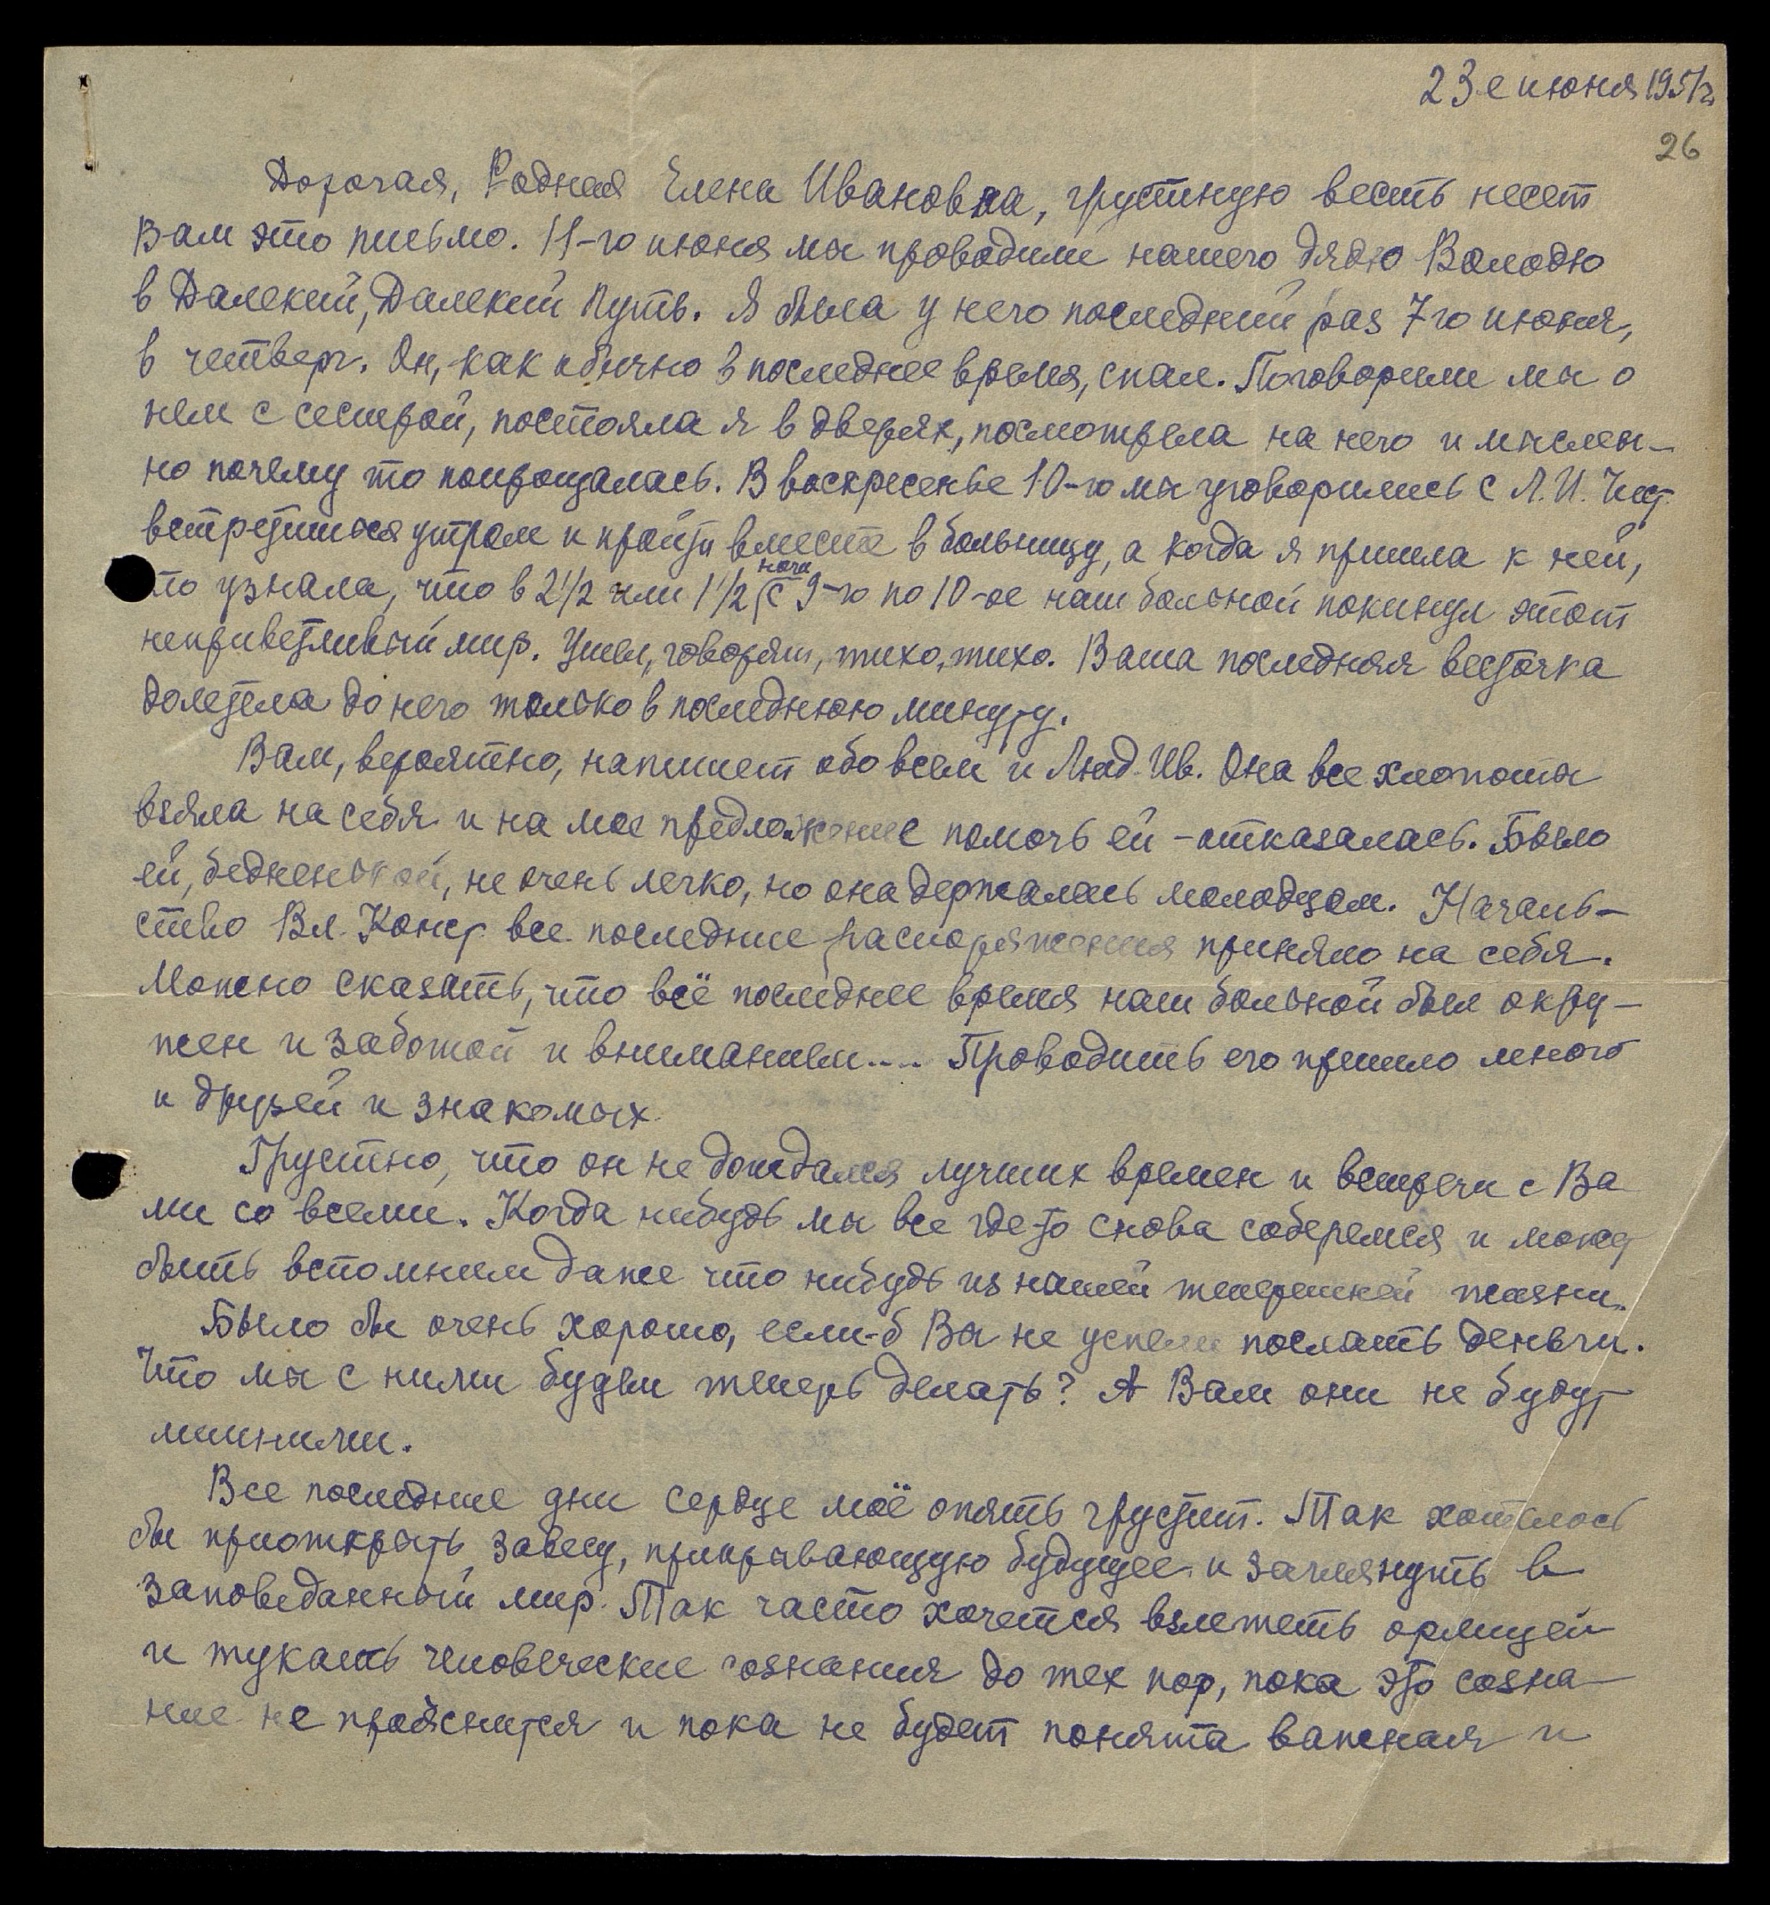 23 е июня 1951 г.
26
Дорогая, Родная Елена Ивановна, грустную весть несет
Вам это письмо. 11-го июня мы проводили нашего дядю Володю
в Далекий, Далекий Путь. Я была у него последний раз 7го июня,
в четверг. Он, как обычно в последнее время, спал. Поговорили мы о
нем с сестрой, постояла я в дверях, посмотрела на него и мыслен-
но почему то попрощалась. В воскресенье 10-го мы уговорились с Л.И. Чист.
встретиться утром и пройти вместе в больницу, а когда я пришла к ней,
то узнала, что в 2 1/2 или 1 1/2 ночи с 9-го по 10-ое наш больной покинул этот
неприветливый мир. Ушел, говорят, тихо, тихо. Ваша последняя весточка
долетела до него только в последнюю минуту.
Вам, вероятно, напишет обо всем и Люд. Ив. Она все хлопоты
взяла на себя и на мое предложение помочь ей - отказалась. Было
ей, бедненькой, не очень легко, но она держалась молодцом. Началь-
ство Вл. Конст. все последние распоряжения приняло на себя.
Можно сказать, что всё последнее время наш больной был окру-
жен и заботой и вниманием.... Проводить его пришло много
и друзей и знакомых.
Грустно, что он не дождался лучших времен и встречи с Ва
ми со всеми. Когда нибудь мы все где то снова соберемся и может
быть вспомним даже что нибудь из нашей теперешней жизни.
Было бы очень хорошо, если-б Вы не успели послать деньги.
Что мы с ними будем теперь делать? А Вам они не будут
лишними.
Все последние дни сердце моё опять грустит. Так хотелось
бы приоткрыть завесу, прикрывающую будущее и заглянуть в
заповеданный мир. Так часто хочется взлететь орлицей
и тукать человеческие сознания до тех пор, пока это созна-
ние не прояснится и пока не будет понята важная и